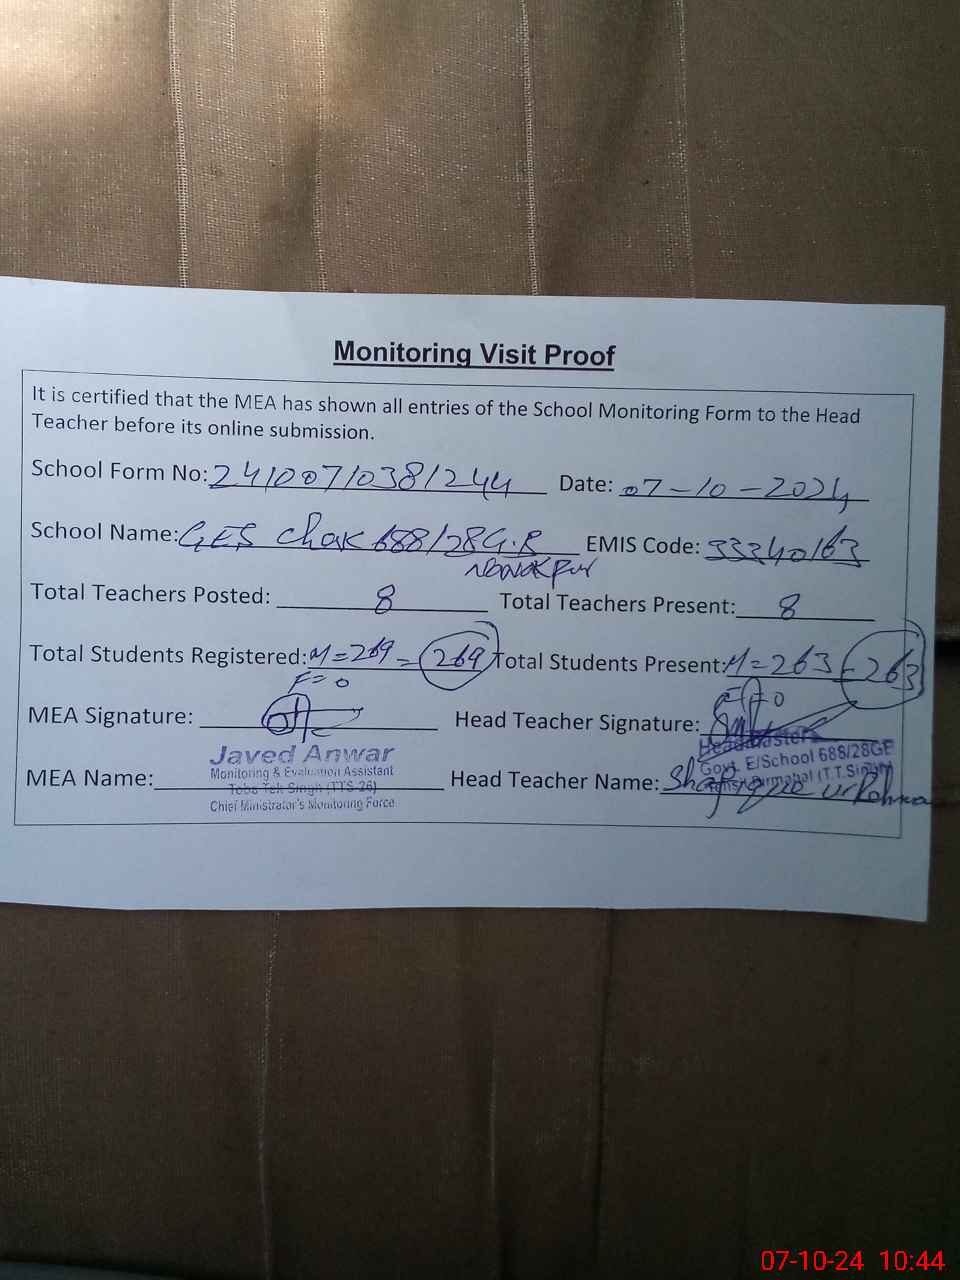 Monitoring Visit Proof
It is certified that the MEA has shown all entries of the School Monitoring Form to the Head
Teacher before its online submission.
School Form No: 24100710381244 Date: 07-10-2024
School Name: GES Chak 688/28G.B EMIS Code: 33340163
Total Teachers Posted: 8 Total Teachers Present: 8
Total Students Registered: M=269 = 269 Total Students Present: M=263 = 263
F=0 F=0
MEA Signature: Head Teacher Signature:
Javed Anwar
Monitoring & Evaluation Assistant
Toba Tek Singh (TTS-26)
Chief Ministrator's Monitoring Force
MEA Name: Head Teacher Name:
Headmaster
Govt. E/School 688/28GB
(T.T.Singh)
07-10-24 10:44